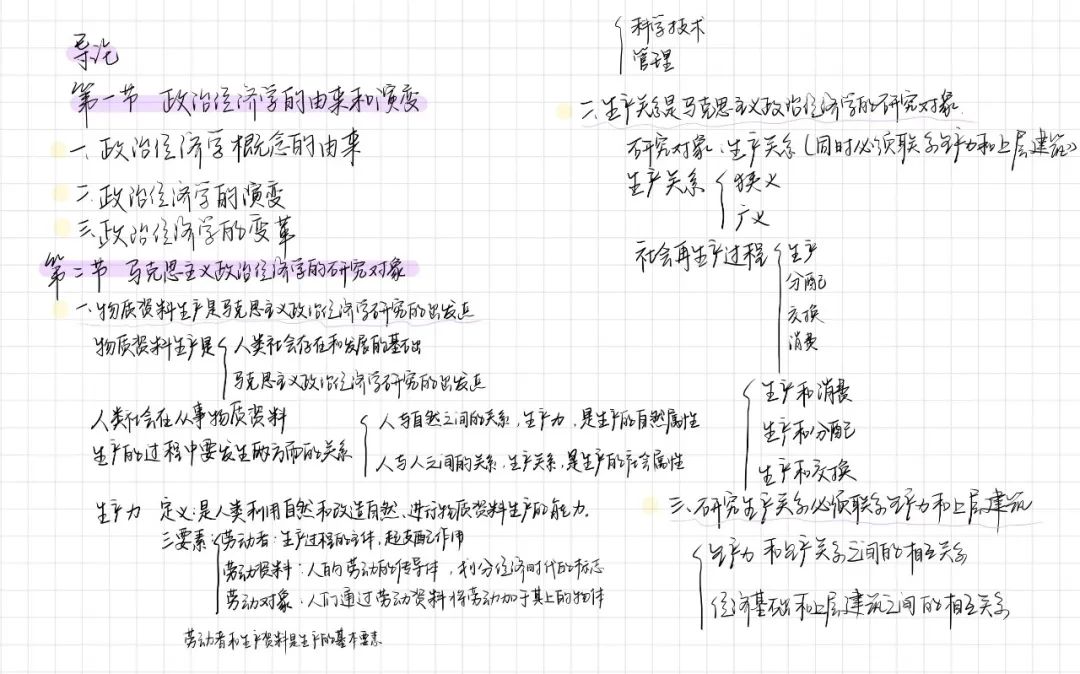 导论
第一节 政治经济学的由来和演变
一、政治经济学概念的由来
二、政治经济学的演变
三、政治经济学的变革
第二节 马克思主义政治经济学的研究对象
一、物质资料生产是马克思主义政治经济学研究的出发点
物质资料生产是
人类社会存在和发展的基础
马克思主义政治经济学研究的出发点
人类社会在从事物质资料
生产的过程中要发生两方面的关系
人与自然之间的关系,生产力,是生产的自然属性
人与人之间的关系,生产关系,是生产的社会属性
生产力 定义:是人类利用自然和改造自然、进行物质资料生产的能力.
三要素
劳动者:生产过程的主体,起支配作用
劳动资料:人的劳动的传导体,划分经济时代的标志
劳动对象:人们通过劳动资料将劳动加于其上的物体
劳动者和生产资料是生产的基本要素
科学技术
管理
二、生产关系是马克思主义政治经济学的研究对象
研究对象:生产关系(同时必须联系生产力和上层建筑)
生产关系
狭义
广义
社会再生产过程
生产
分配
交换
消费
生产和消费
生产和分配
生产和交换
三、研究生产关系必须联系生产力和上层建筑
生产力和生产关系之间的相互关系
经济基础和上层建筑之间的相互关系